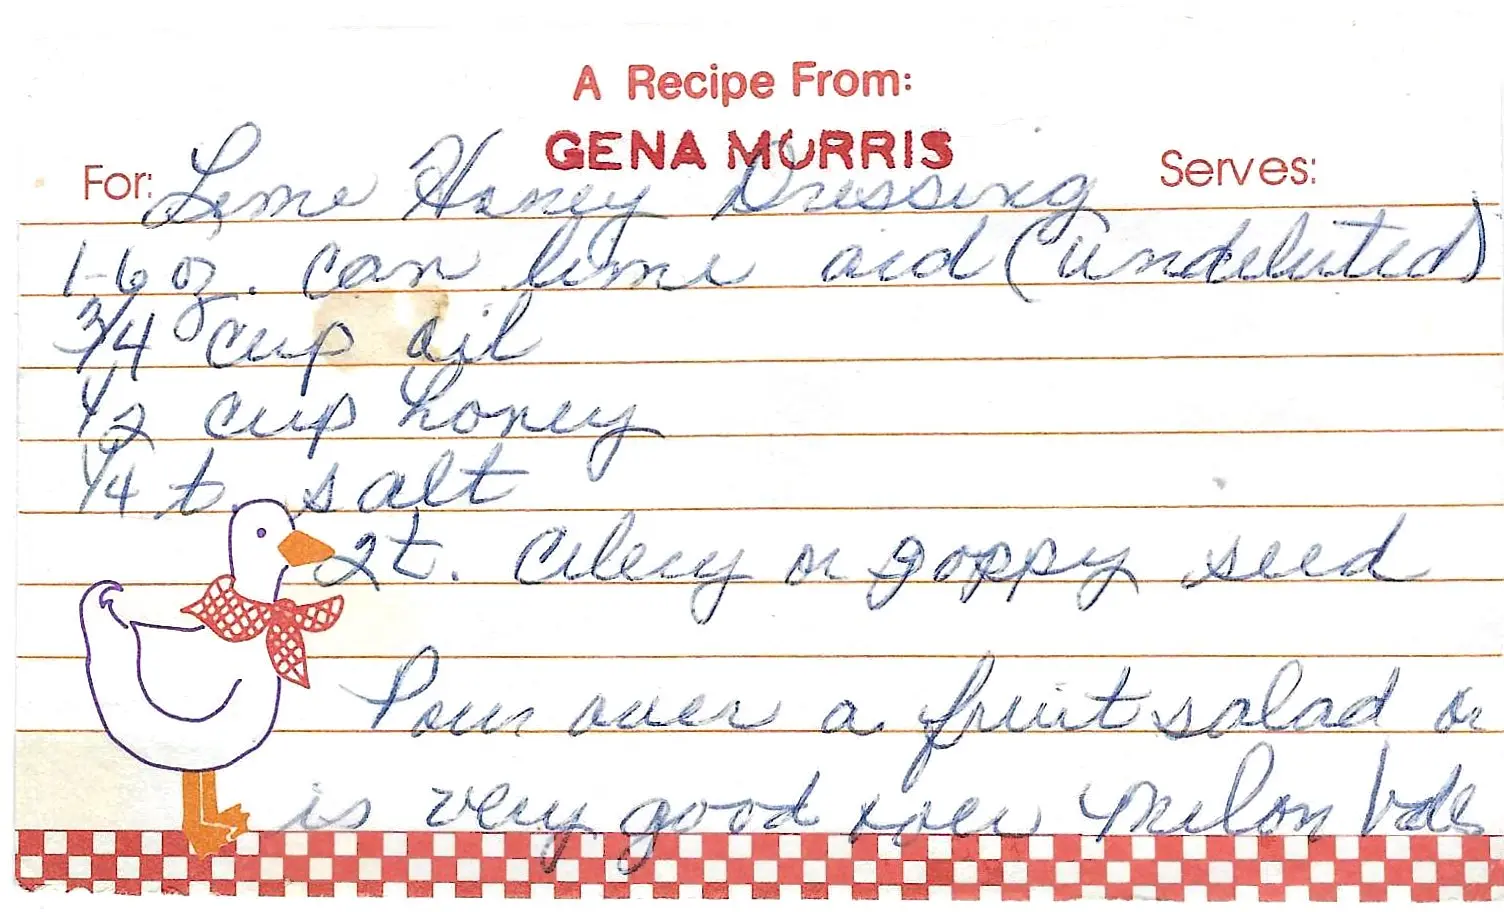 A Recipe From:
GENA MORRIS
For: Lime Honey Dressing Serves:
1-6 oz. can lime aid (undiluted)
3/4 cup oil
1/2 cup honey
1/4 t. salt
2t. Celery or poppy seed
Pour over a fruit salad or
is very good over melon